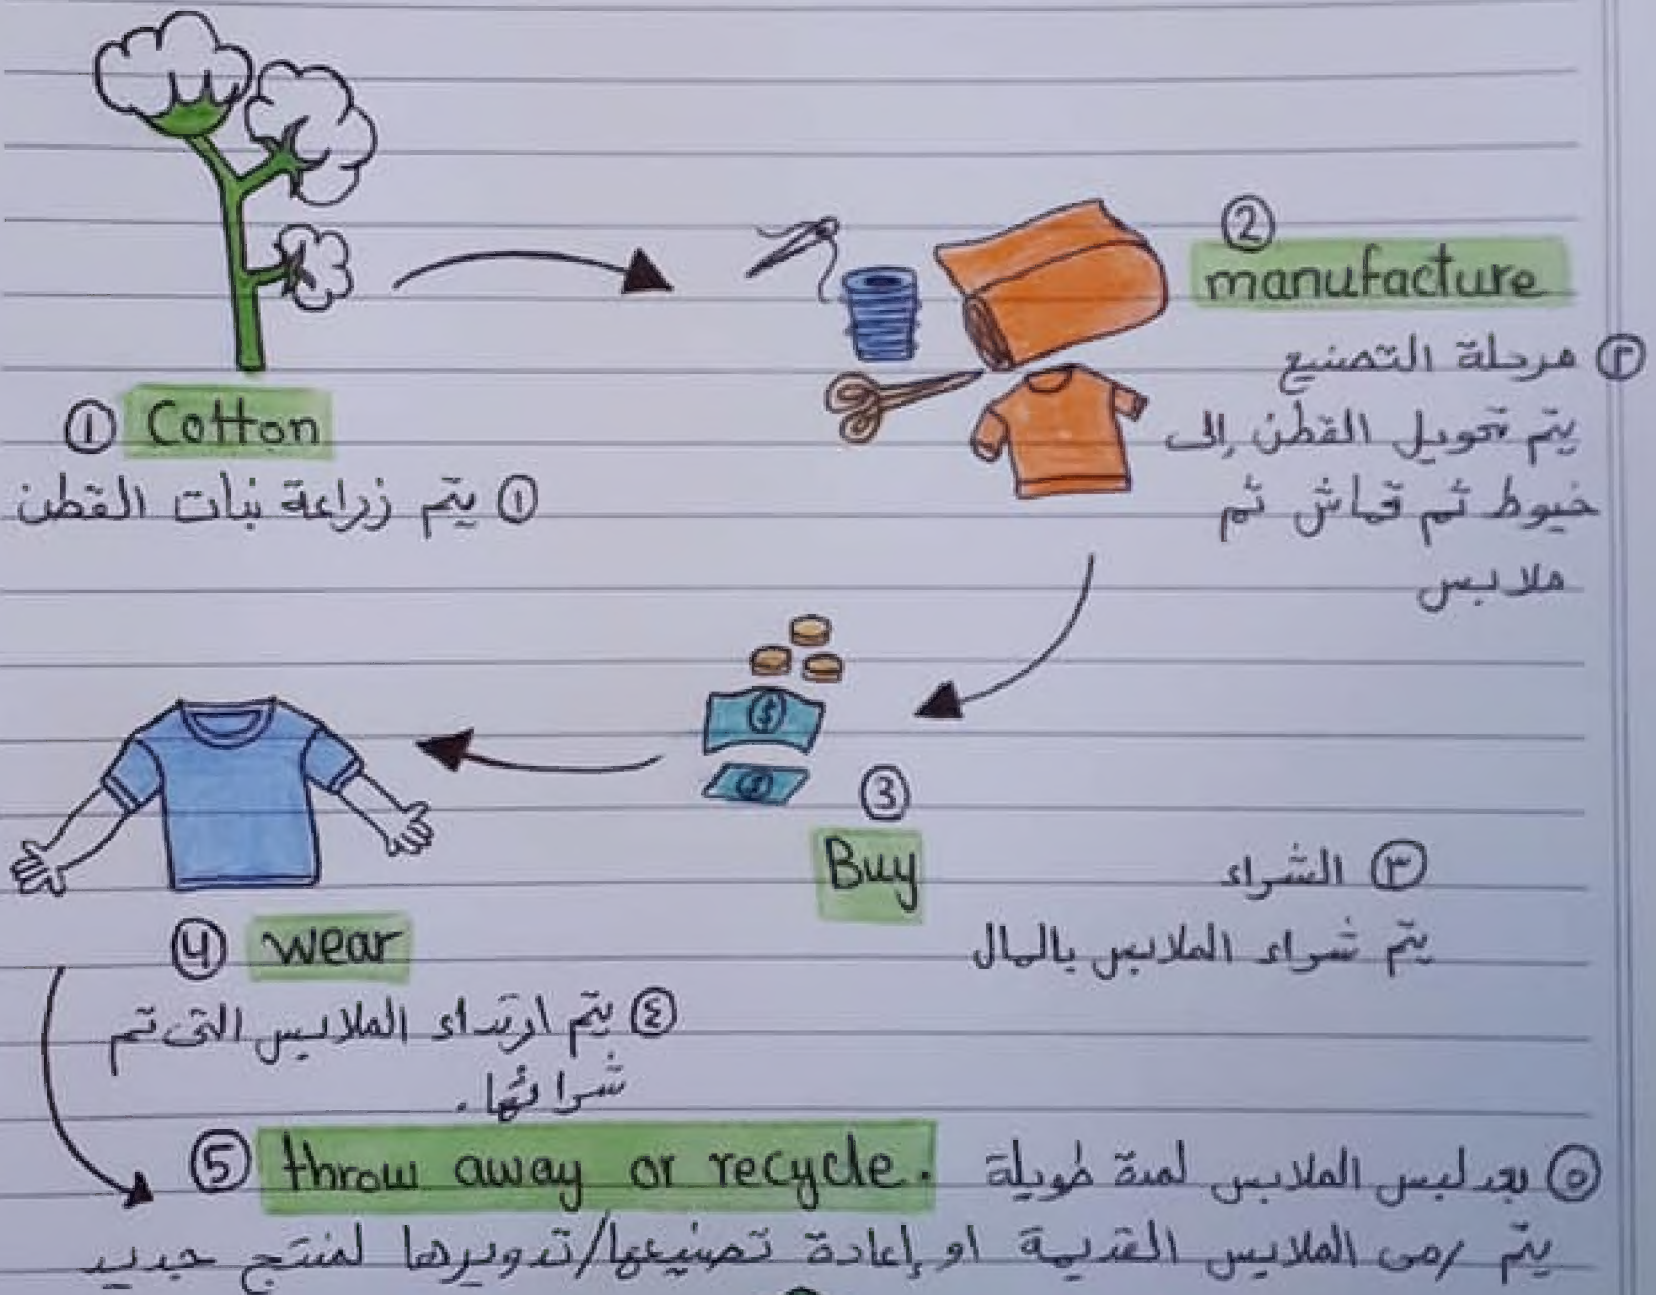 ① Cotton
① يتم زراعة نبات القطن
②
manufacture
② مرحلة التصنيع
يتم تحويل القطن إلى
خيوط ثم قماش ثم
ملابس
③
Buy
③ الشراء
يتم شراء الملابس بالمال
④ wear
④ يتم ارتداء الملابس التى تم
شرائها.
⑤ throw away or recycle. ⑤ بعد لبس الملابس لمدة طويلة
يتم رمى الملابس القديمة او إعادة تصنيعها/تدويرها لمنتج جديد